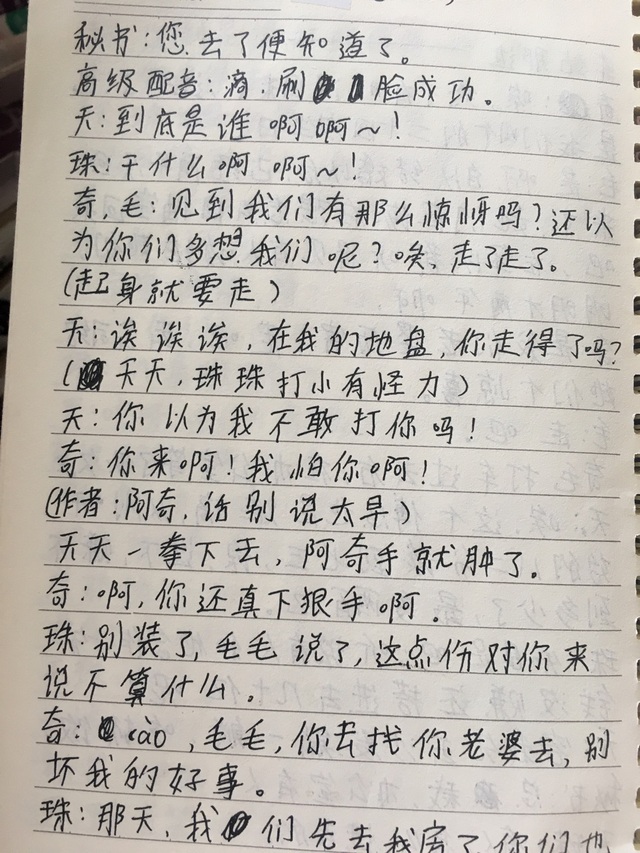 秘书:您去了便知道了。
高级配音:滴.刷脸成功。
天:到底是谁啊啊~!
珠:干什么啊啊~!
奇,毛:见到我们有那么惊讶吗?还以
为你们多想我们呢?唉,走了走了。
(起身就要走)
天:诶诶诶,在我的地盘,你走得了吗?
(天天,珠珠打小有怪力)
天:你以为我不敢打你吗!
奇:你来啊!我怕你啊!
(作者:阿奇,话别说太早)
天天一拳下去,阿奇手就肿了。
奇:啊,你还真下狠手啊.
珠:别装了,毛毛说了,这点伤对你来
说不算什么。
奇:cào,毛毛,你去找你老婆去,别
坏我的好事。
珠:那天,我们先去我房了你们也